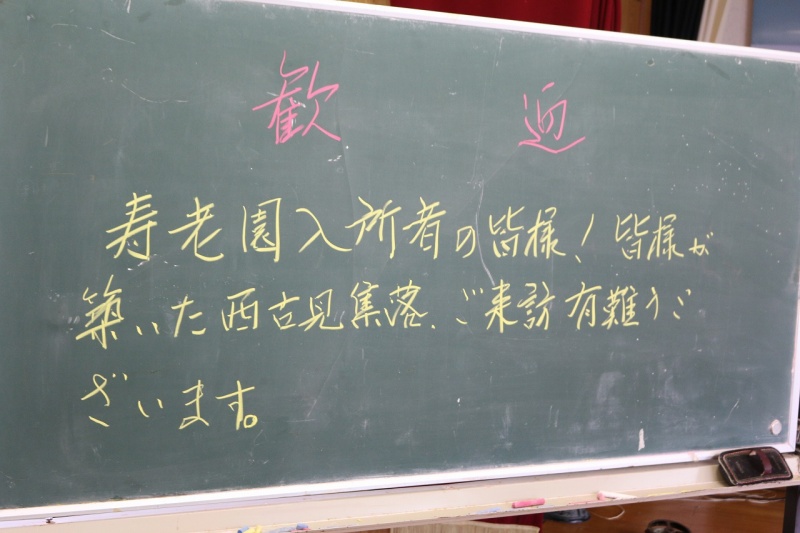 歓迎
寿老園入所者の皆様！皆様が
築いた西古見集落、ご来訪有難うご
ざいます。